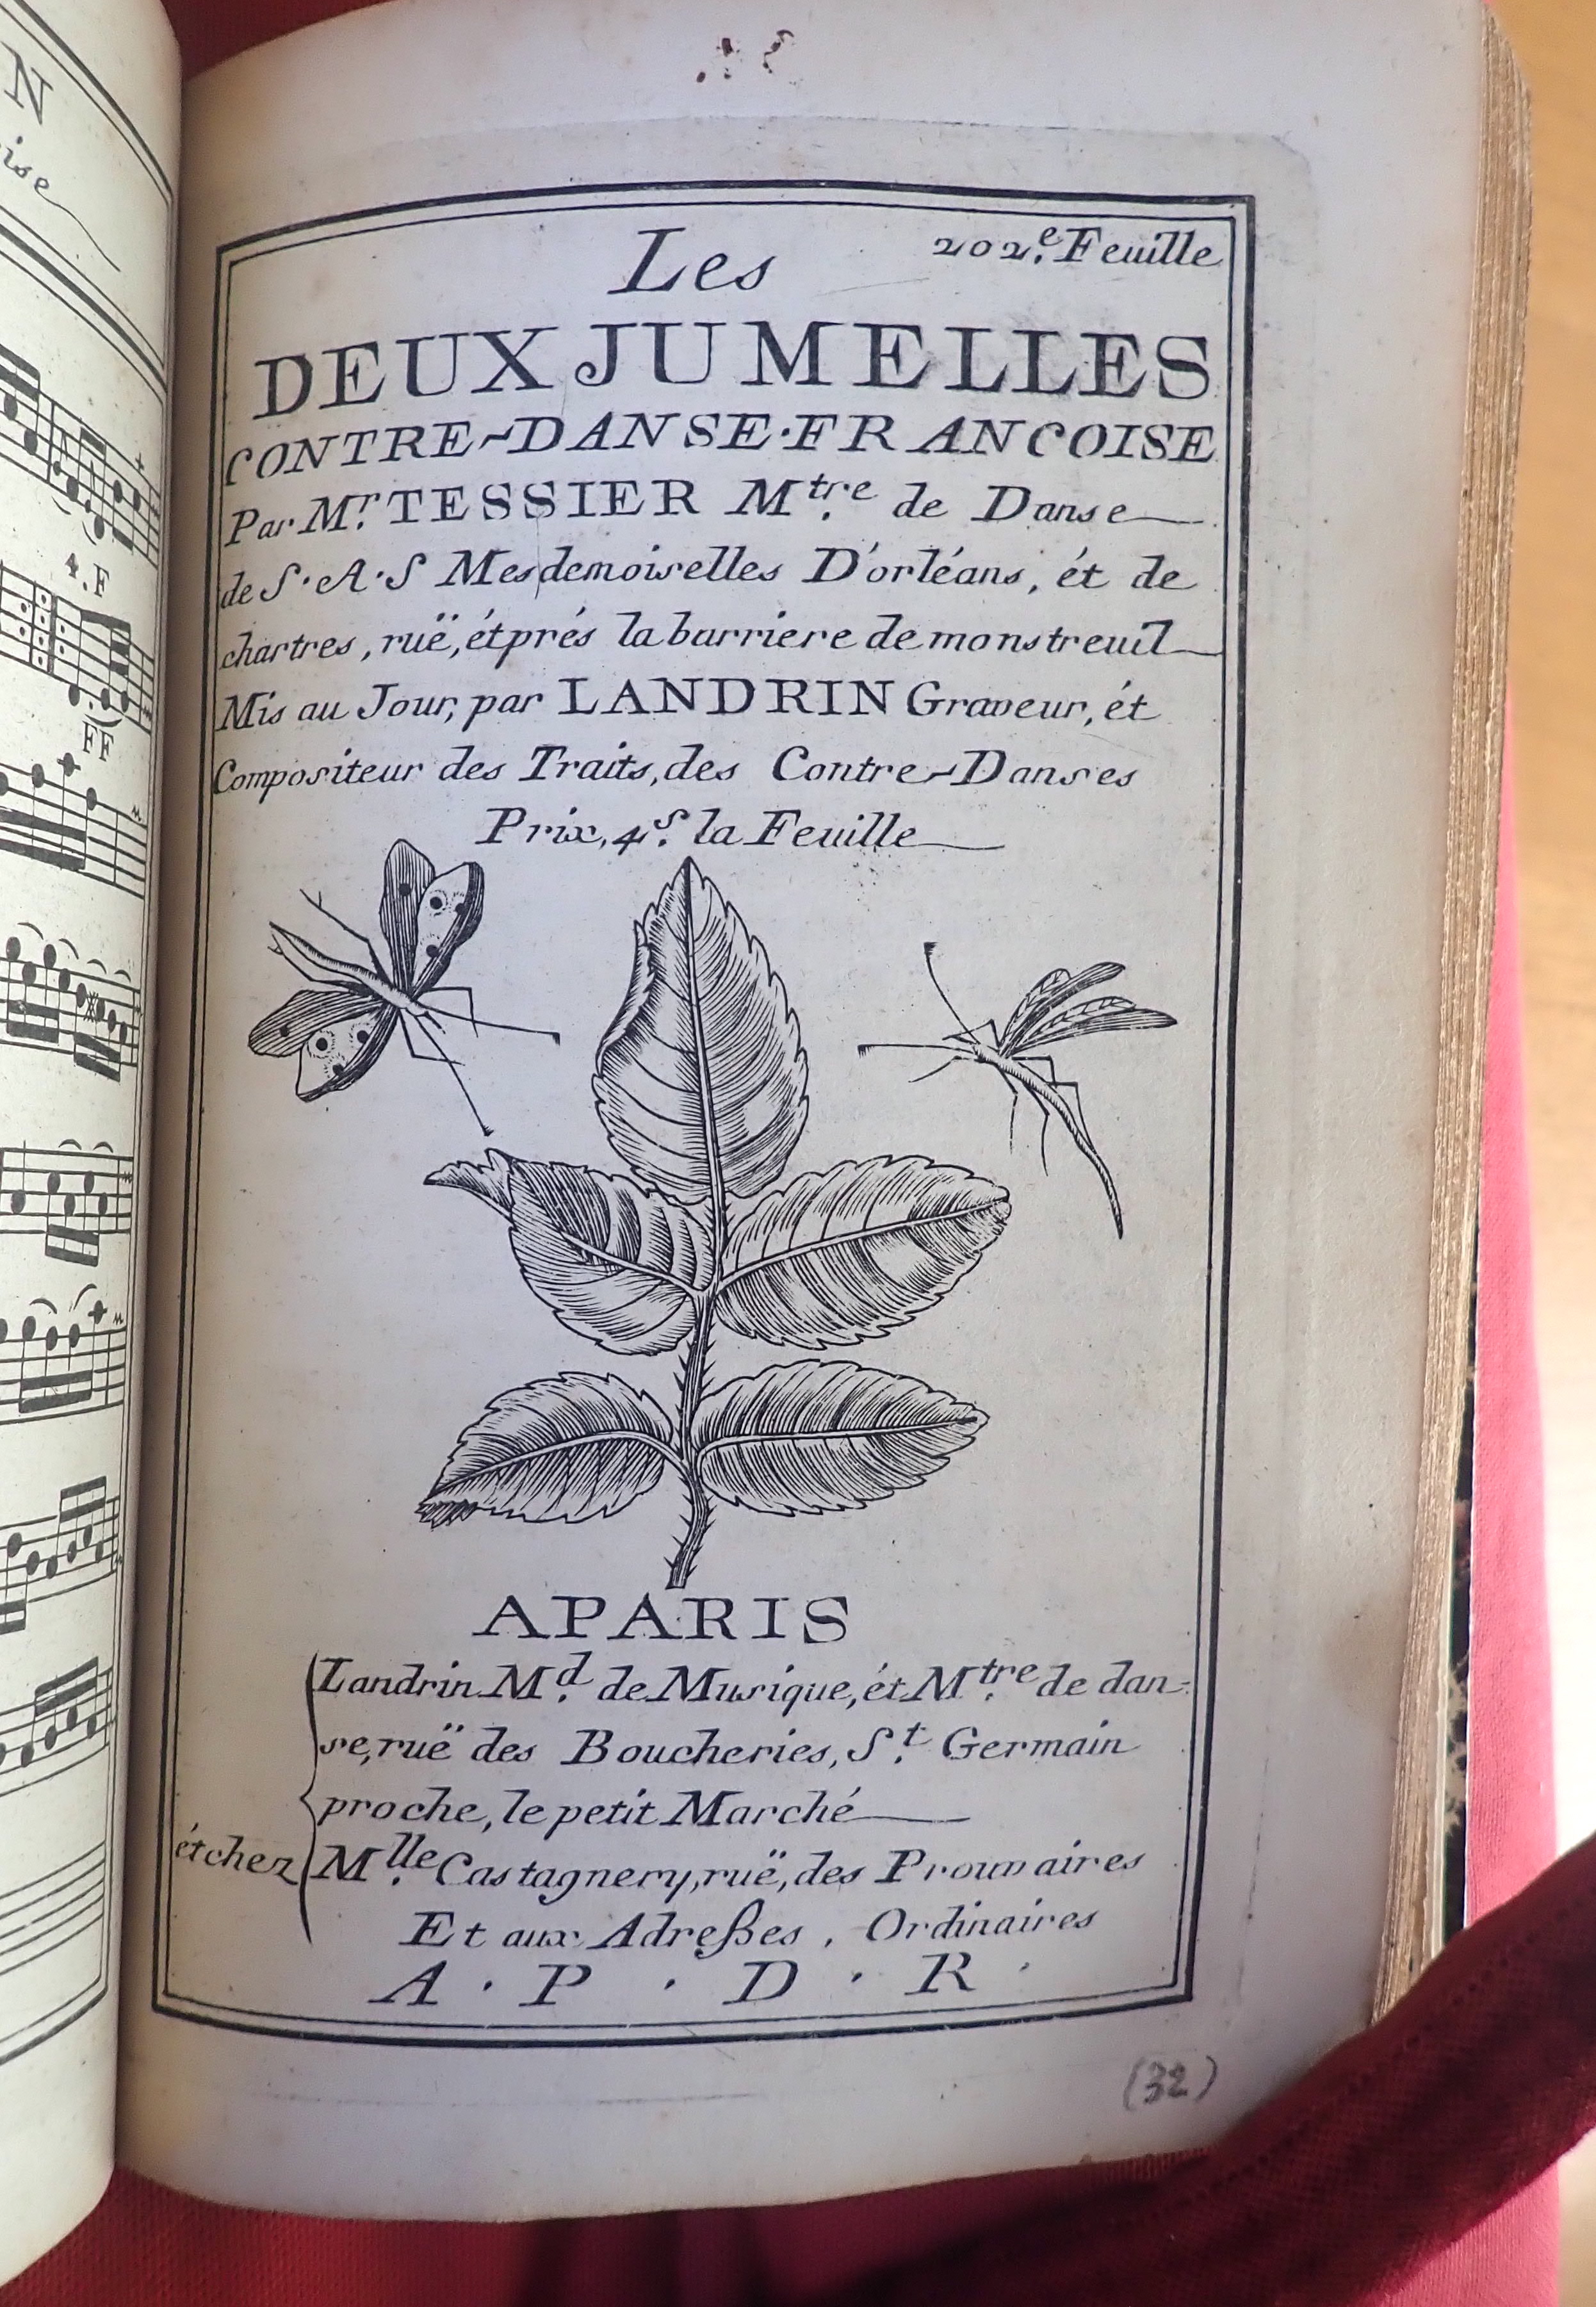 N
ise
4.F
FF
202.e Feuille
Les
DEUX JUMELLES
CONTRE-DANSE·FRANCOISE
Par M.r TESSIER M.tre de Danse
de S·A·S Mesdemoiselles D'orléans, ét de
chartres, ruë, ét prés la barriere de monstreuil
Mis au Jour, par LANDRIN Graveur, ét
Compositeur des Traits, des Contre-Danses
Prix, 4.s la Feuille
APARIS
Landrin M.d de Musique, ét M.tre de dan-
se, ruë des Boucheries, S.t Germain
proche, le petit Marché
ét chez M.lle Castagnery, ruë, des Prouvaires
Et aux Adreßes, Ordinaires
A · P · D · R ·
(32)